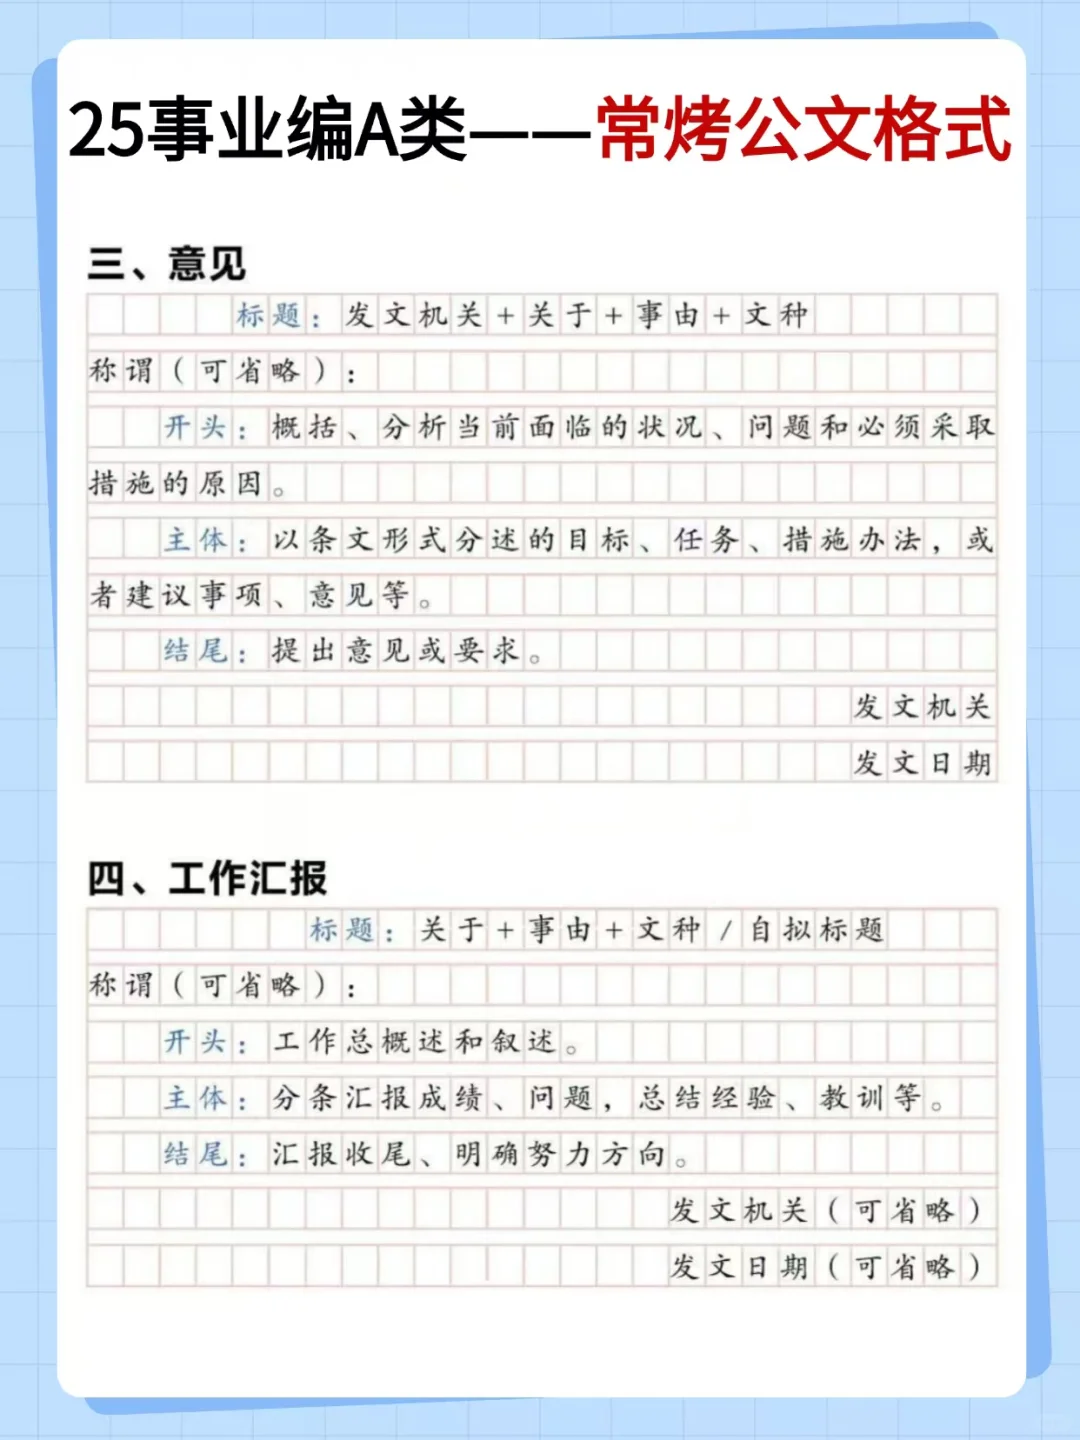 25事业编A类——常烤公文格式
三、意见
标题：发文机关+关于+事由+文种
称谓（可省略）：
开头：概括、分析当前面临的状况、问题和必须采取
措施的原因。
主体：以条文形式分述的目标、任务、措施办法，或
者建议事项、意见等。
结尾：提出意见或要求。
发文机关
发文日期
四、工作汇报
标题：关于+事由+文种/自拟标题
称谓（可省略）：
开头：工作总概述和叙述。
主体：分条汇报成绩、问题，总结经验、教训等。
结尾：汇报收尾、明确努力方向。
发文机关（可省略）
发文日期（可省略）